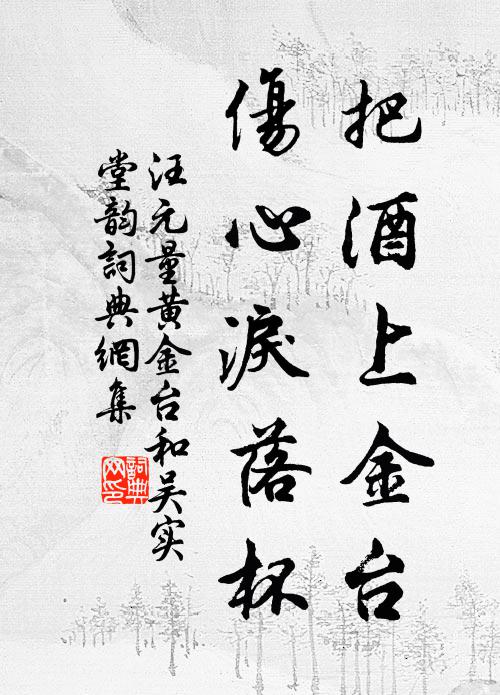 把酒上金台
傷心淚落杯
汪元量黄金台和吴实
堂韵詞典網集
詞典
网印